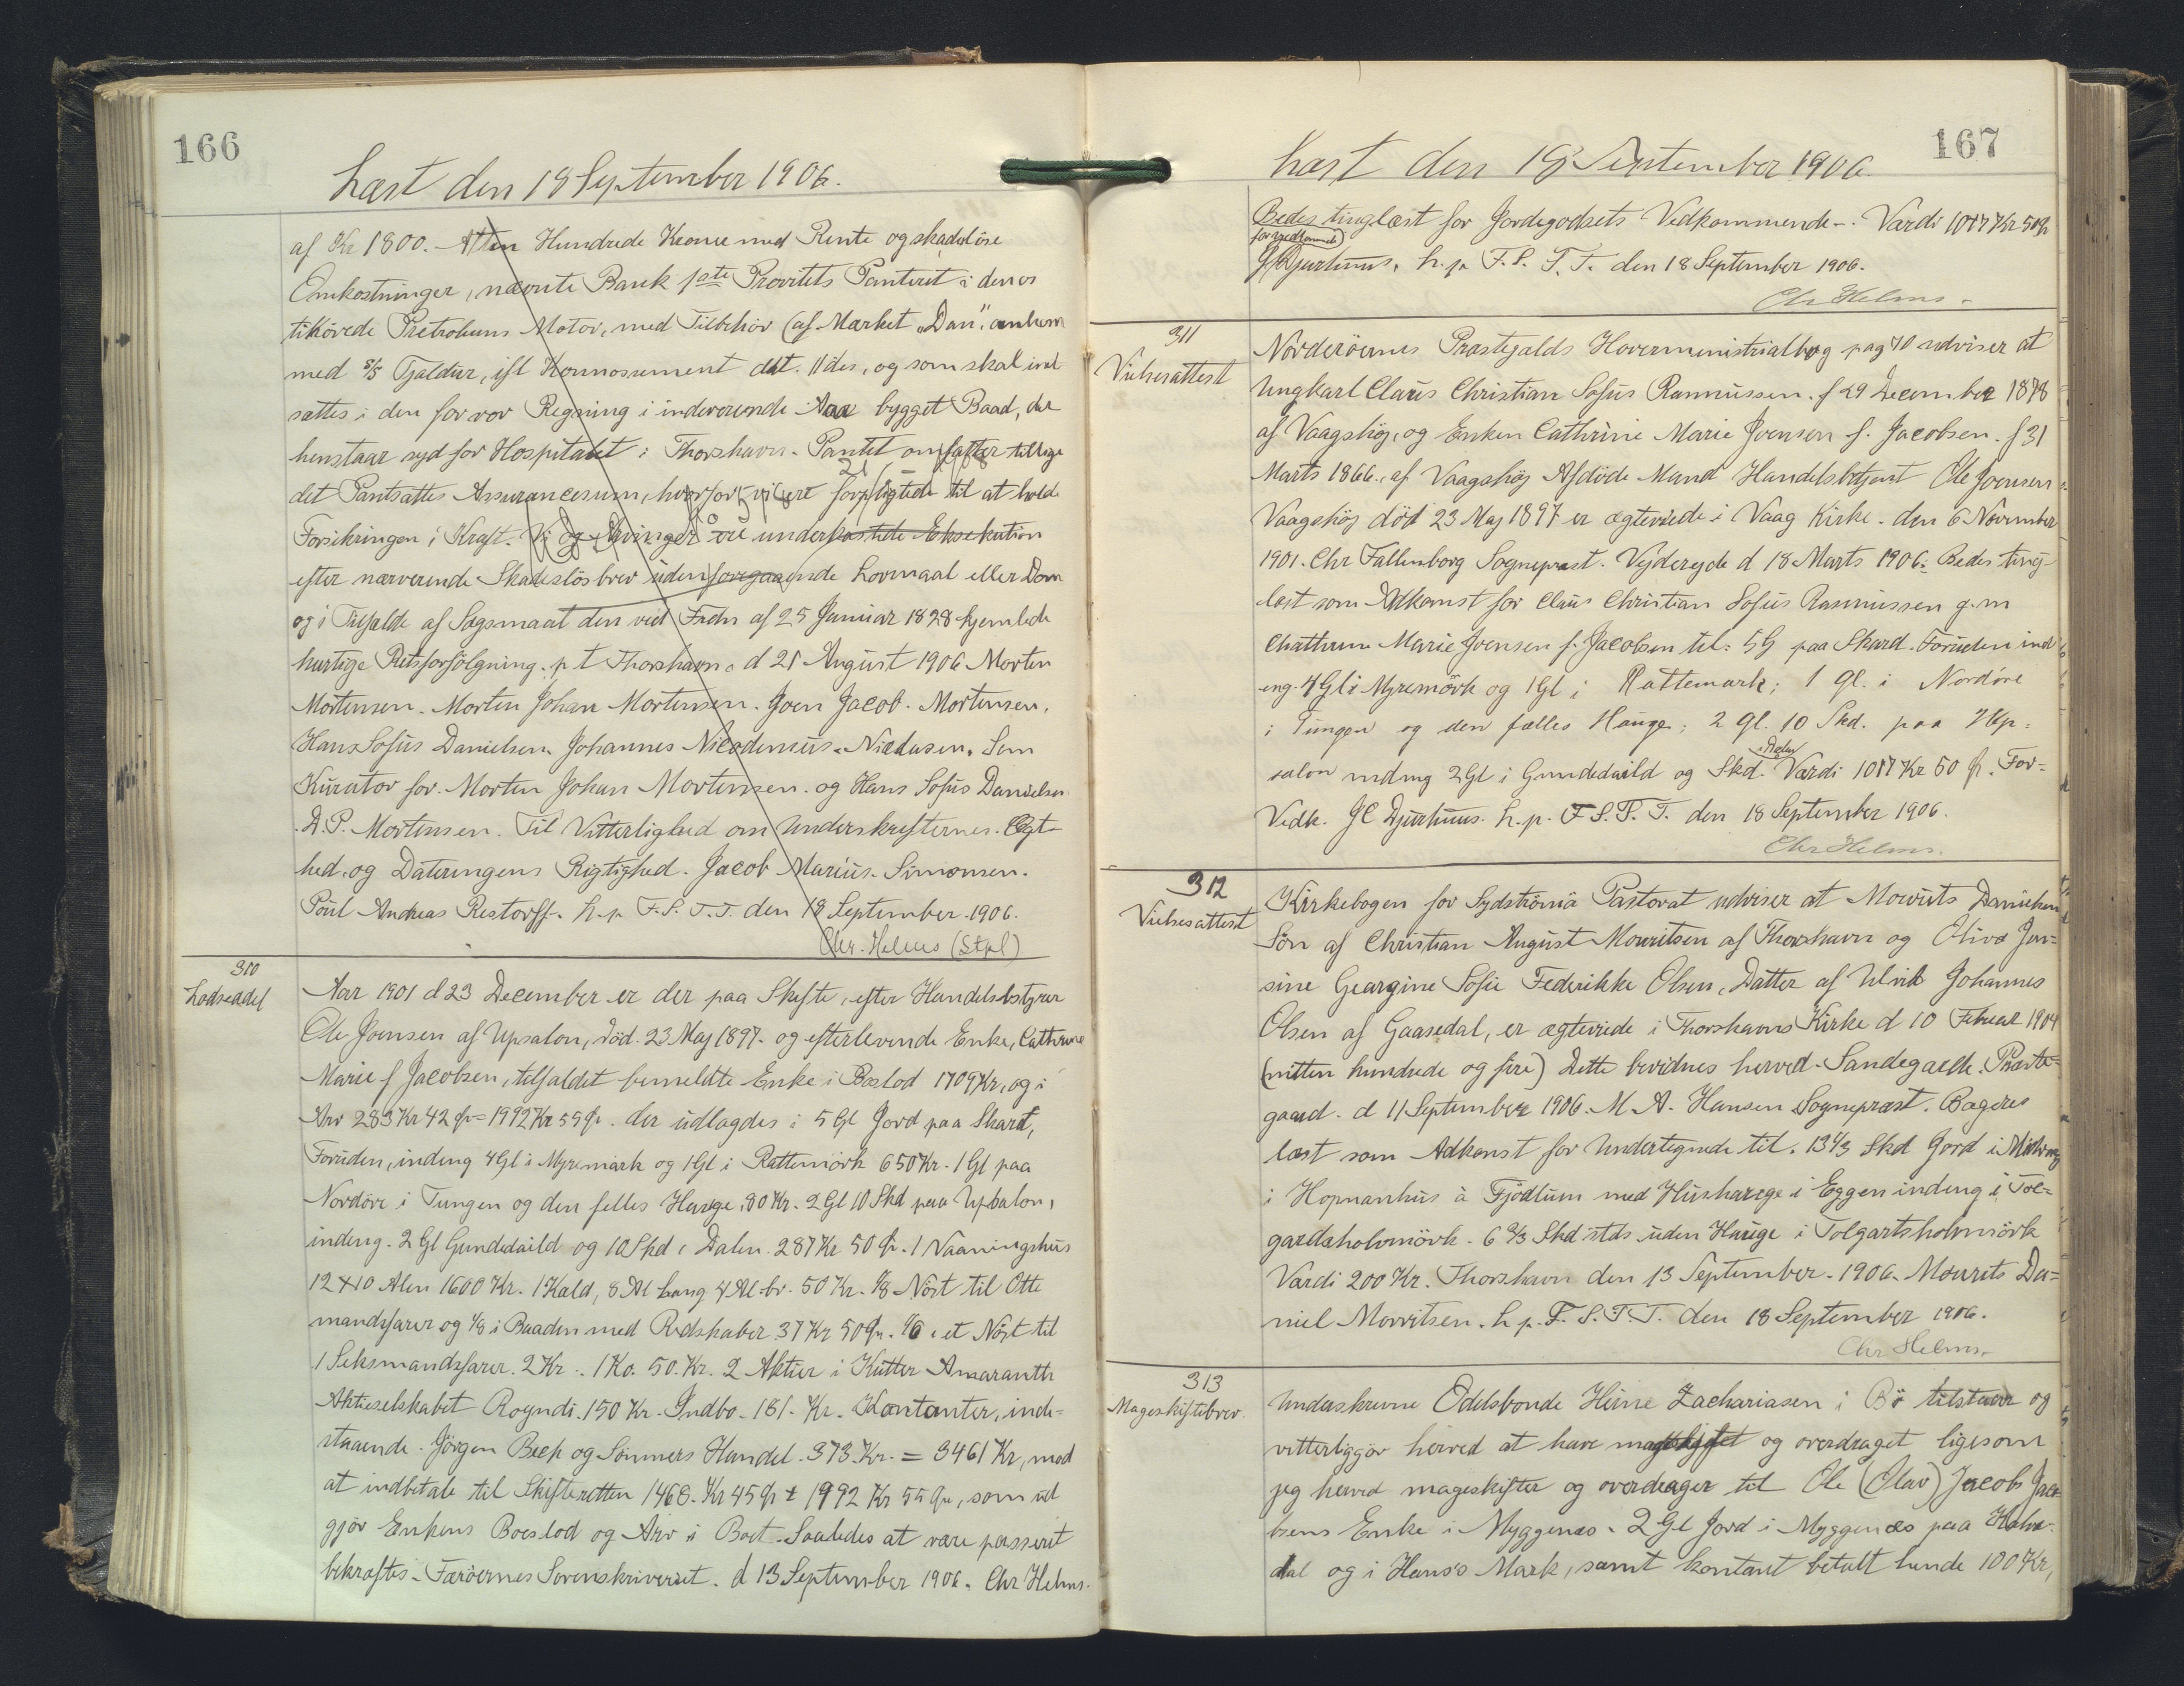 166
Læst den 18 September 1906.
af Kr 1800. Atten Hundrede Kroner med Rente og skadeløse
Omkostninger, nævnte Bank 1ste Prioritets Panteret i den os
tihörede Petroleums Motor, med Tilbehör (af Mærket "Dan", ankom
med S/S Tjaldur, ifl Konnossement dat. 11 des, og som skal ind
sættes i den for vor Regning i indeværende Aar bygget Baad, der
henstaar syd for Hospitalet i Thorshavn. Pantet omfatter tillige
det Pantsattes Assurancesum, hvorfor vi ere forpligtede til at holde
Forsikringen i Kraft. Vi og Arvinger ere underkastede Eksekution
efter nærværende Skadeslösbrev uden foregaaende Lovmaal eller Dom
og i Tilfælde af Sagsmaal den ved Frdn af 25 Januar 1828 hjemlede
hurtige Retsforfölgning. p. t Thorshavn d 21 August 1906 Morten
Mortensen. Morten Johan Mortensen. Joen Jacob. Mortensen.
Hans Sofus Danielsen. Johannes Nicodemus. Niclasen. Som
Kurator for Morten Johan Mortensen. og Hans Sofus Danielsen
D. P. Mortensen. Til Vitterlighed om Underskrifternes Ægt-
hed og Dateringens Rigtighed. Jacob Marius. Simonsen.
Poul Andreas Restorff. h. p F. S. T. T. den 18 September 1906.
Chr. Helms (Stpl)
310
Lodseddel
Aar 1901 d 23 December er der paa Skifte, efter Handelsbstyrer
Ole Joensen af Upsalon, död. 23 Maj 1897. og efterlevende Enke, Cathrine
Marie f Jacobsen, tilfaldet bemeldte Enke i Boslod 1709 Kr, og i
Arv 283 Kr 42 Ør = 1992 Kr 55 Ør. der udlagdes i 5 Gl Jord paa Skard,
Foruden, indeng 4 Gl i Myremark og 1 Gl i Rattemörk 650 Kr. 1 Gl paa
Nordöre i Tungen og den felles Hauge, 80 Kr. 2 Gl 10 Skd paa Upsalon,
indeng. 2 Gl Gundedaild og 10 Skd i Dalen. 287 Kr 50 Ø. 1 Vaaningshus
12 x 10 Alen 1600 Kr. 1 Kald, 8 Al lang 4 Al. br. 50 Kr. 1/8 Nöst til Otte
mandsfarer og 1/8 i Baaden med Redskaber 37 Kr 50 Ør. 1/6 i et Nöst til
1 Seksmandsfarer. 2 Kr. 1 Ko. 50. Kr. 2 Aktier i Kutter Amaranth
Aktieselskabet Royndi. 150 Kr. Indbo. 181. Kr. Kontanter, inde=
staaende. Jörgen Bech og Sönners Handel. 373. Kr. = 3461 Kr, mod
at indbetale til Skifteretten 1468. Kr 45 Ør ± 1992 Kr 55 Ør, som ud
gjör Enkens Boeslod og Arv i Boet. Saaledes at være passeret
bekræftes. Færöernes Sorenskriveriet. d 13 September 1906. Chr Helms.
167
Læst den 18 September 1906.
Bedes tinglæst for Jordegodsets Vedkommende-. Værdi 1017 Kr 50 Ør
for vedkommende
J. Djurhuus. h. p F. S. T. T. den 18 September 1906.
Chr Helms.
311
Vielsesattest
Norderöernes Præstegjalds Hoverministrialbog pag 70 udviser at
Ungkarl Claus Christian Sofus Rasmussen. f 29 December 1878
af Vaagshöj, og Enken Cathrine Marie Joensen f. Jacobsen. f 31
Marts 1866., af Vaagshöj Afdöde Mand Handelsbetjent Ole Joensen
Vaagshöj död 23 Maj 1897 er ægteviede i Vaag Kirke. den 6 November
1901. Chr Fallenborg Sognepræst. Vejderejde d 18 Marts 1906. Bedes ting-
læst som Adkomst for Claus Christian Sofus Rasmussen g. m
Chathrine Marie Joensen f. Jacobsen til: 5 G paa Skard. Foruden ind
eng. 4 Gl i Myremörk og 1 Gl i Rattemark; 1 Gl. i Nordöre
i Tungen og den fælles Hauge; 2 Gl. 10 Skd. paa Up=
salon indeng 2 Gl i Gundedaild og Skd. i Dalen Værdi 1017 Kr 50 Ø. For=
Vedk. J C Djurhuus. h. p. F. S. T. T. den 18 September 1906.
Chr Helms.
312
Vielsesattest
Kirkebogen for Sydströmö Pastorat udviser at Mourits Danielsen
Sön af Christian August Mouritsen af Thorshavn og Oliva Jen=
sine Geargine Sofie Federikke Olsen, Datter af Ulrik Johannes
Olsen af Gaasedal, er ægteviede i Thorshavns Kirke d 10 Februar 1904
(nitten hundrede og fire) Dette bevidnes herved. Sandegaerde. Præste=
gaard. d 11 September 1906. M. A. Hansen Sognepræst. Bageres
læst som Adkomst for Undertegnede til. 13 1/3 Skd Jord i Midvaag
i Hopnanhus à Fjödlum med Hushauge i Eggen indeng i Tol=
gardsholomörk. 6 2/3 Skd stds uden Hauge i Tolgartsholmsörk
Værdi 200 Kr. Thorshavn den 13 September. 1906. Mourits Da=
niel Mouritsen. h p. F. S. T. T. den 18 September 1906.
Chr Helms.
313
Mageskiftebrev.
Underskrevne Odelsbonde Heine Zachariasen i Bö tilstaar og
vitterliggör herved at have mageskiftet og overdraget ligesom
jeg herved mageskifter og overdrager til Ole (Olav) Jacob Jaco=
bsens Enke i Myggenæs. 2 Gl Jord i Myggenæs paa Halve-
dal og i Hans's Mark, samt kontant betalt hende 100 Kr,